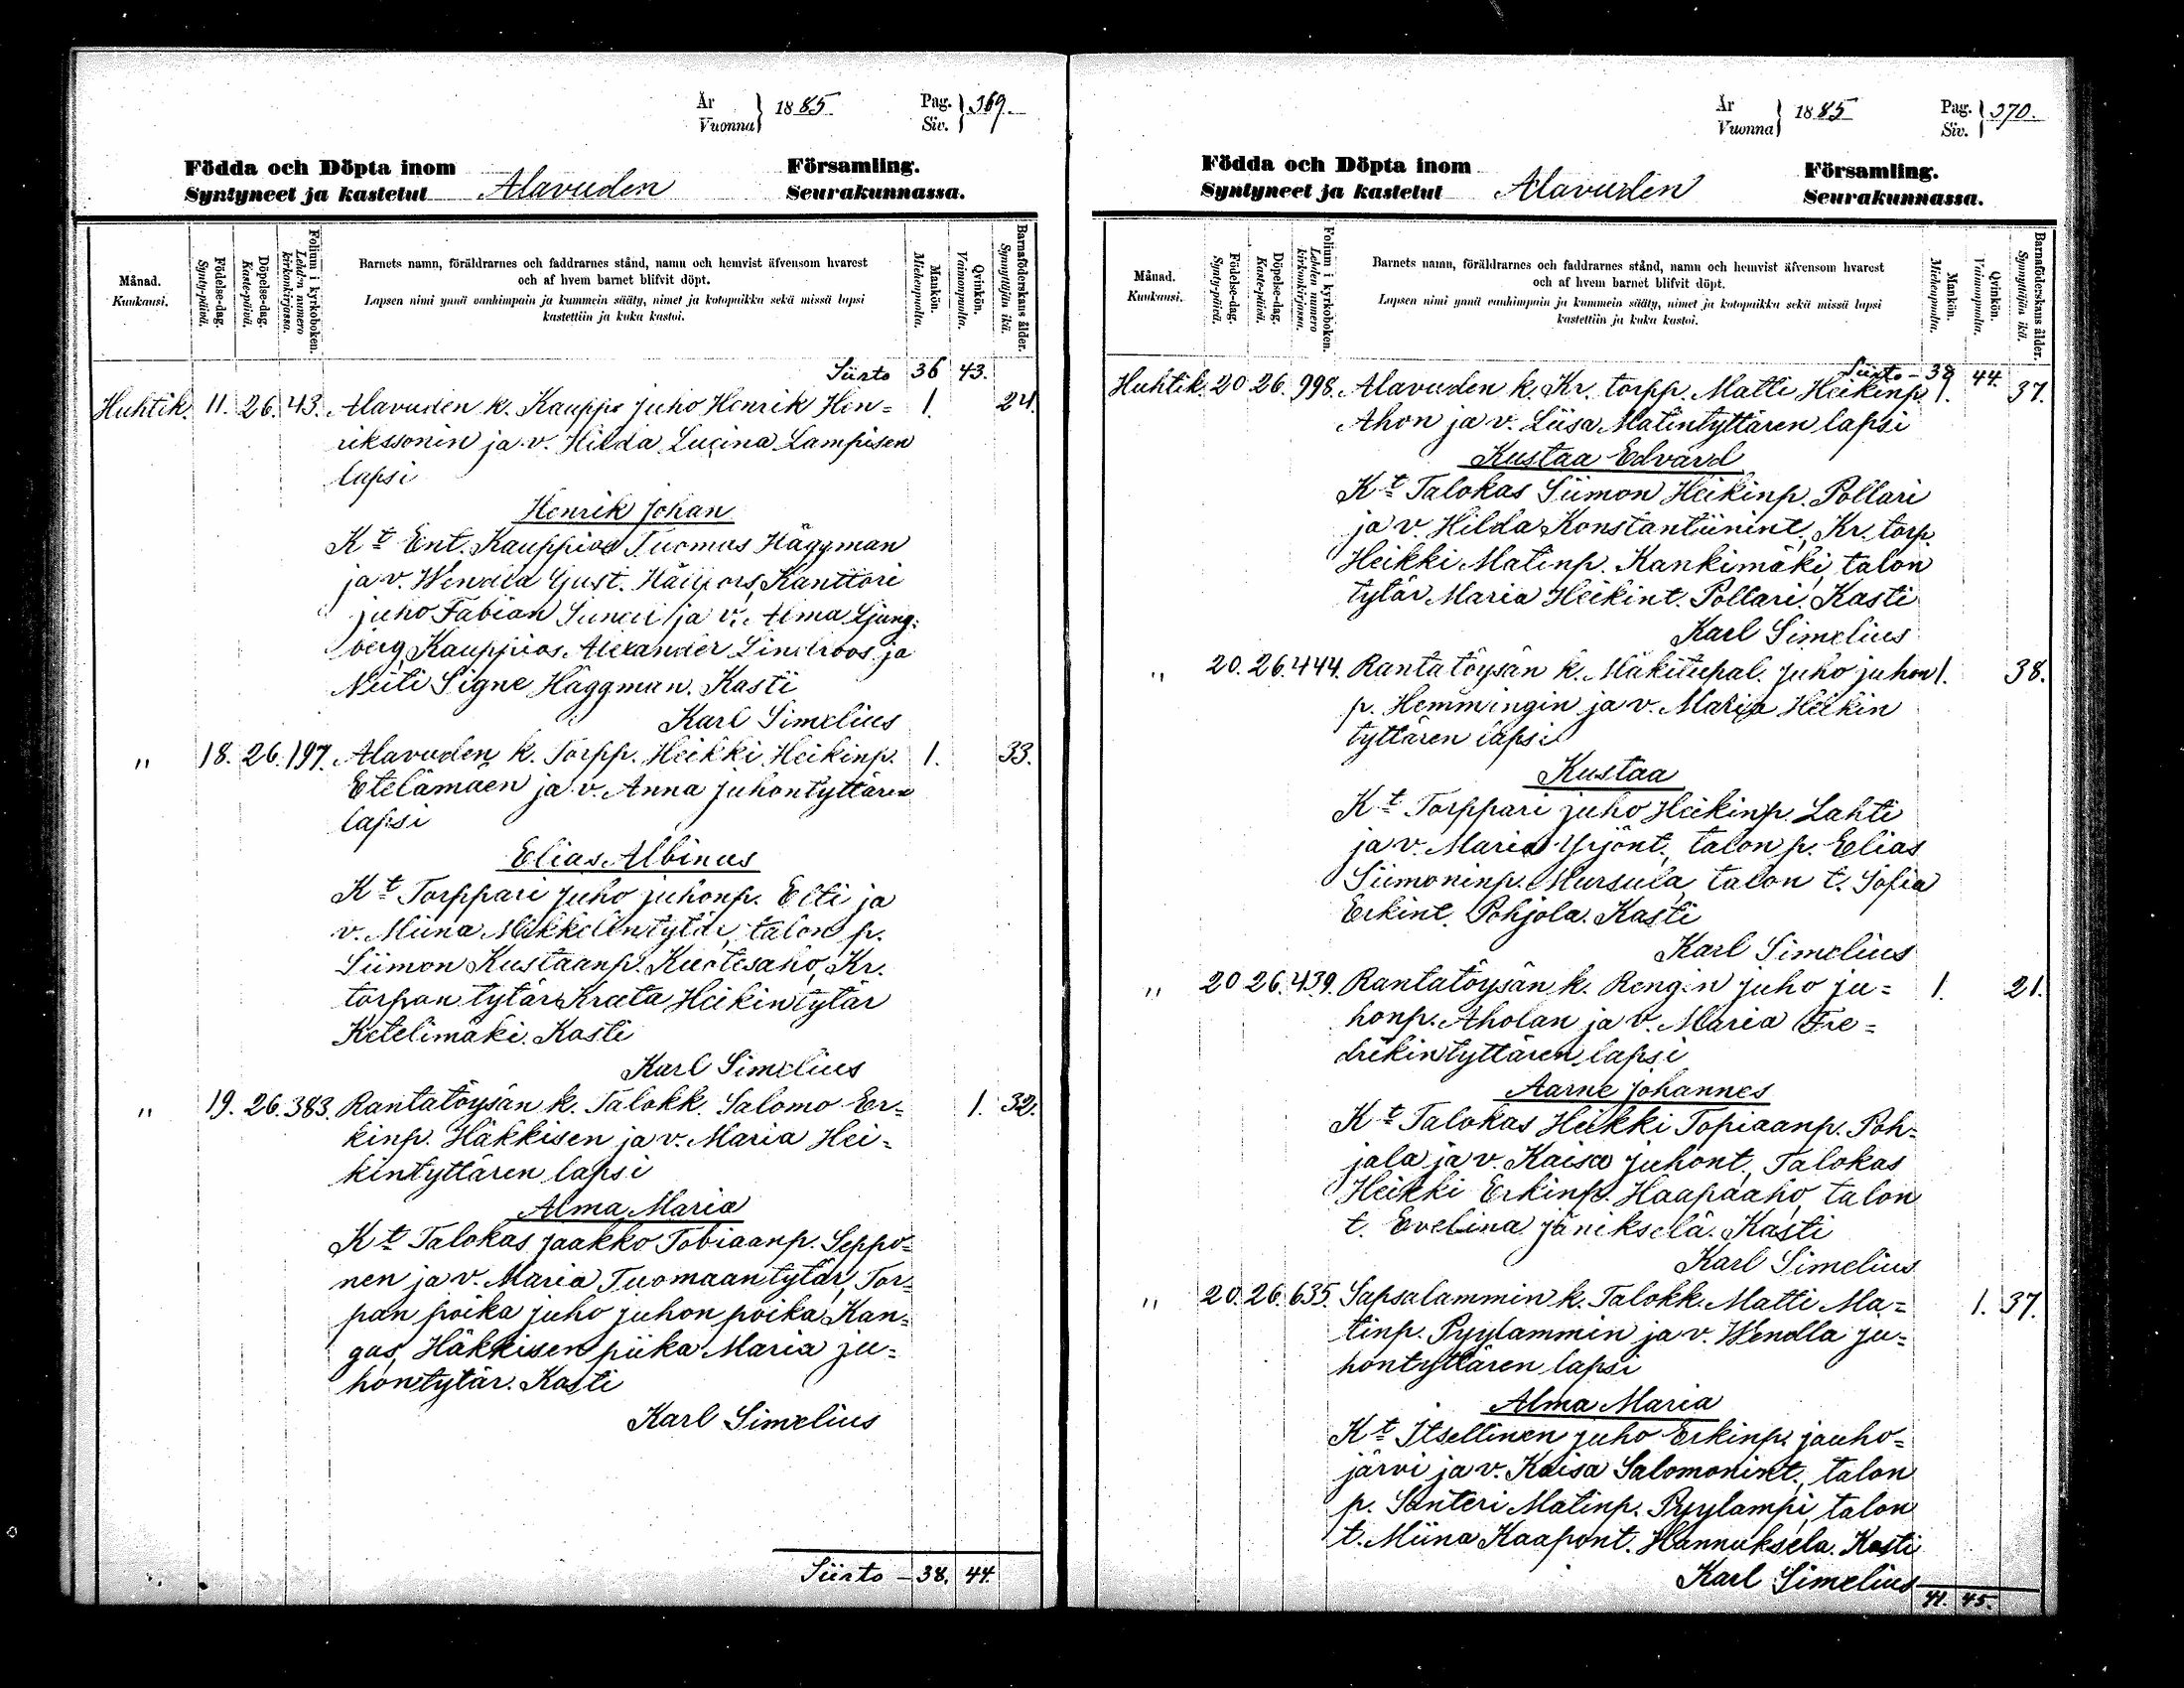 År
Vuonna } 1885
Pag.
Siv. } 369.
Födda och Döpta inom
Syntyneet ja kastetut
Alavuden
Församling.
Seurakunnassa.
Månad.
Kuukausi.
Födelse-dag.
Synty-päivä.
Döpelse-dag.
Kaste-päivä.
Folium i kyrkoboken.
Lehden numero kirkonkirjassa.
Barnets namn, föräldrarnes och faddrarnes stånd, namn och hemvist äfvensom hvarest
och af hvem barnet blifvit döpt.
Lapsen nimi ynnä vanhimpain ja kummein sääty, nimet ja kotopaikka sekä missä lapsi
kastettiin ja kuka kastoi.
Mankön.
Miehenpuolta.
Qvinkön.
Vaimonpuolta.
Barnaföderskans ålder.
Synnyttäjän ikä.
Siirto 36 43.
Huhtik. 11. 26. 43. Alavuden k. Kaupp. Juho Henrik Hen= 1. 24.
rikssonin ja v. Hilda Lucina Lampisen
lapsi
Henrik Johan
Kt Ent. Kauppias Tuomas Häggman
ja v. Wendla Gust. Kanttori
Juho Fabian ja v. Alma Ljung=
berg, Kauppias Alexander Lindroos ja
Neiti Signe Häggman. Kasti
Karl Simelius
" 18. 26. 197. Alavuden k. Torpp. Heikki Heikinp. 1. 33.
Etelämäen ja v. Anna Juhontyttären
lapsi
Elias Albinus
Kt Torppari Juho Juhonp. Elti ja
v. Miina Mikkelintytär, talon p.
Siimon Kustaanp. Kuotesaho, Kr.
torpan tytär Kreeta Heikintytär
Ketelimäki. Kasti
Karl Simelius
" 19. 26. 383. Rantatöysän k. Talokk. Salomo Er= 1. 32.
kinp. Häkkisen ja v. Maria Hei=
kintyttären lapsi
Alma Maria
Kt Talokas Jaakko Tobiaanp. Seppo=
nen ja v. Maria Tuomaantytär, Tor=
pan poika Juho Juhon poika Kan=
gas, Häkkisen piika Maria Ju=
hontytär. Kasti
Karl Simelius
Siirto - 38. 44.
År
Vuonna } 1885
Pag.
Siv. } 370.
Födda och Döpta inom
Syntyneet ja kastetut
Alavuden
Församling.
Seurakunnassa.
Månad.
Kuukausi.
Födelse-dag.
Synty-päivä.
Döpelse-dag.
Kaste-päivä.
Folium i kyrkoboken.
Lehden numero kirkonkirjassa.
Barnets namn, föräldrarnes och faddrarnes stånd, namn och hemvist äfvensom hvarest
och af hvem barnet blifvit döpt.
Lapsen nimi ynnä vanhimpain ja kummein sääty, nimet ja kotopaikka sekä missä lapsi
kastettiin ja kuka kastoi.
Mankön.
Miehenpuolta.
Qvinkön.
Vaimonpuolta.
Barnaföderskans ålder.
Synnyttäjän ikä.
Siirto - 38 44.
Huhtik. 20 26. 998. Alavuden k. Kr. torpp. Matti Heikinp. 1. 37.
Ahon ja v. Liisa Matintyttären lapsi
Kustaa Edvard
Kt Talokas Siimon Heikinp. Pollari
ja v. Hilda Konstantiinint., Kr. torp.
Heikki Matinp. Kankimäki, talon
tytär Maria Heikint. Pollari. Kasti
Karl Simelius
" 20. 26. 444. Rantatöysän k. Mäkitupal. Juho Juhon 1. 38.
p. Hemmingin ja v. Maria Heikin
tyttären lapsi
Kustaa
Kt Torppari Juho Heikinp. Lahti
ja v. Maria Yrjönt., talon p. Elias
Siimoninp. Mursula, talon t. Sofia
Erkint. Pohjola. Kasti
Karl Simelius
" 20 26. 439. Rantatöysän k. Rengin Juho Ju= 1. 21.
honp. Aholan ja v. Maria Fre=
drikintyttären lapsi
Aarne Johannes
Kt Talokas Heikki Topiaanp. Poh=
jala ja v. Kaisa Juhont., Talokas
Heikki Erkinp. Haapaaho, talon
t. Evelina Jänikselä. Kasti
Karl Simelius
" 20. 26. 635. Sapsalammin k. Talokk. Matti Ma= 1. 37.
tinp. Pyylammin ja v. Wendla Ju=
hontyttären lapsi
Alma Maria
Kt Itsellinen Juho Erkinp. Jauho=
järvi ja v. Kaisa Salomonint., talon
p. Santeri Matinp. Pyylampi, talon
t. Miina Kaapont. Hannuksela. Kasti
Karl Simelius
41. 45.